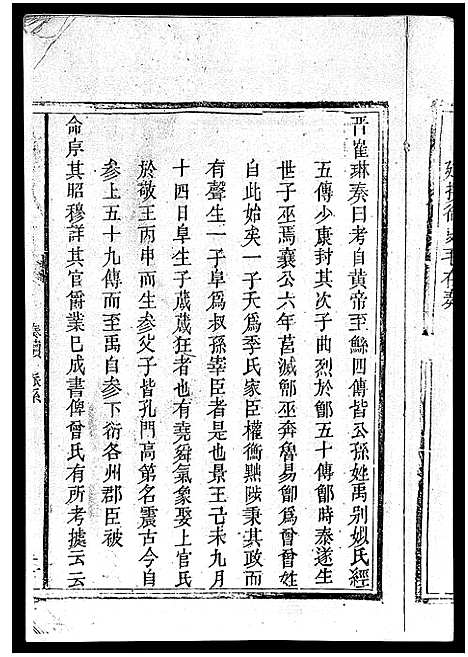 晋崔琳奏曰考自黃帝至鯀四傳皆公孫姓禹别姒氏經
五傳少康封其次子曲烈於鄫五十傳鄫時泰遂生
世子巫焉襄公六年莒滅鄫巫奔魯易鄫爲曾曾姓
自此始矣一子夭爲季氏家臣權衡黜陟秉其政而
有聲生一子阜爲叔孫宰臣者是也景王己未九月
十四日阜生子蒧蒧狂者也有堯舜氣象娶上官氏
於敬王丙申而生參父子皆孔門高第名震古今自
參上五十九傳而至禹自參下衍各州郡臣被
命序其昭穆詳其官爵業已成書俾曾氏有所考據云云